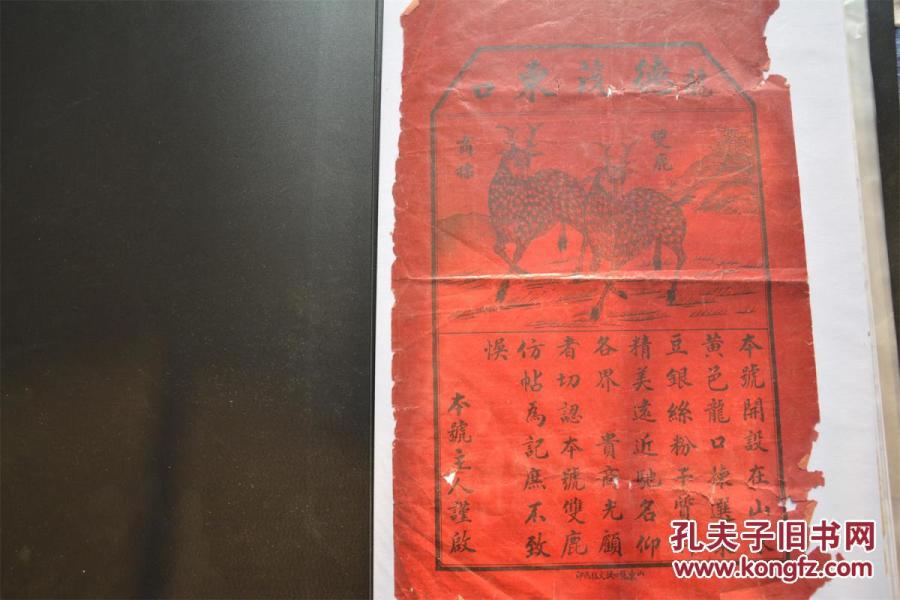 龍德茂東口
雙鹿
商標
本號開設在山
黃邑龍口揀選
豆銀絲粉干
精美遠近馳名仰
各界 貴商光顧
者切認本號雙鹿
仿帖為記庶不致
悞
本號主人謹啟
孔夫子旧书网
www.kongfz.com